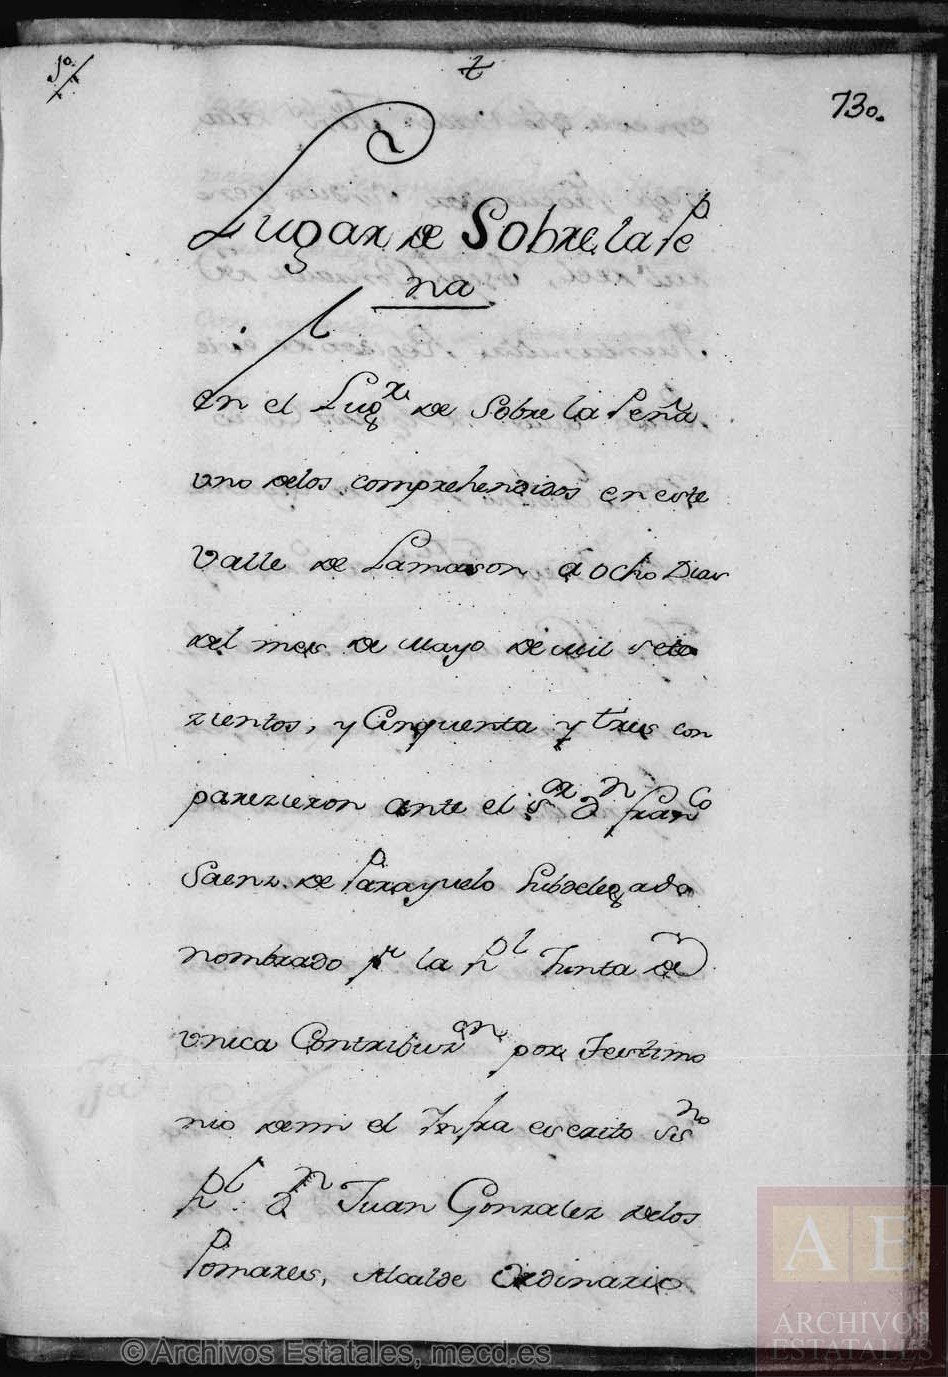 730.
Lugar de Sobre la Pe
na
en el Lugr de Sobre la Peña
vno delos comprehendidos en este
Valle de Lamason a ocho Dias
del mes de Mayo de Mil sete
zientos, y Cinquenta y tres con
parezieron ante el sor Dn franco
Saenz. de Parayuelo Subdelegado
nombrado pr la Rl Junta de
vnica Contribuzon por Testimo
nio demi el Infra escrito ssno
Rl. Dn Juan Gonzalez delos
Pomares, Alcalde Ordinario
AE
ARCHIVOS
ESTATALES
© Archivos Estatales, mecd.es